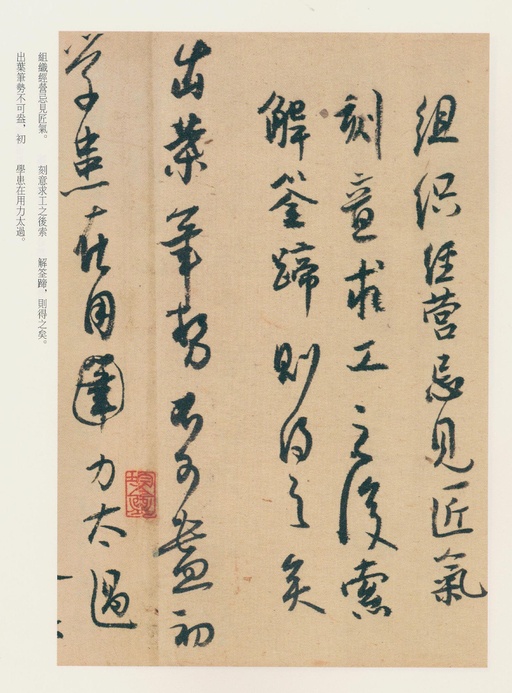 組織經營忌見匠氣
刻意求工之後索
解筌蹄則得之矣
出葉筆勢不可盡初
學患在用筆力太過
組織經營忌見匠氣。 刻意求工之後索 解筌蹄，則得之矣。
出葉筆勢不可盡，初 學患在用力太過。